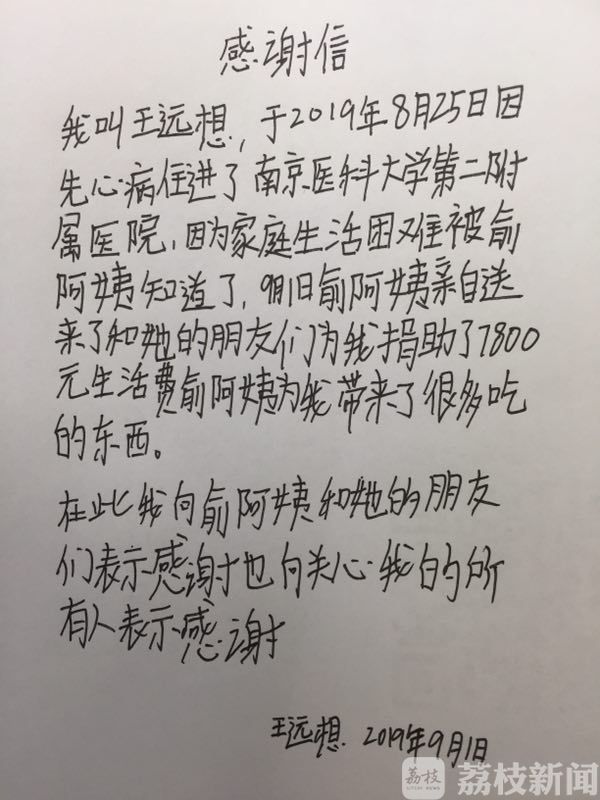 感谢信
我叫王远想，于2019年8月25日因
先心病住进了南京医科大学第二附
属医院，因为家庭生活困难被俞
阿姨知道了，9月1日俞阿姨亲自送
来了和她的朋友们为我捐助了7800
元生活费俞阿姨为我带来了很多吃
的东西。
在此我向俞阿姨和她的朋友
们表示感谢也向关心我的所
有人表示感谢
王远想 2019年9月1日
荔枝 荔枝新闻